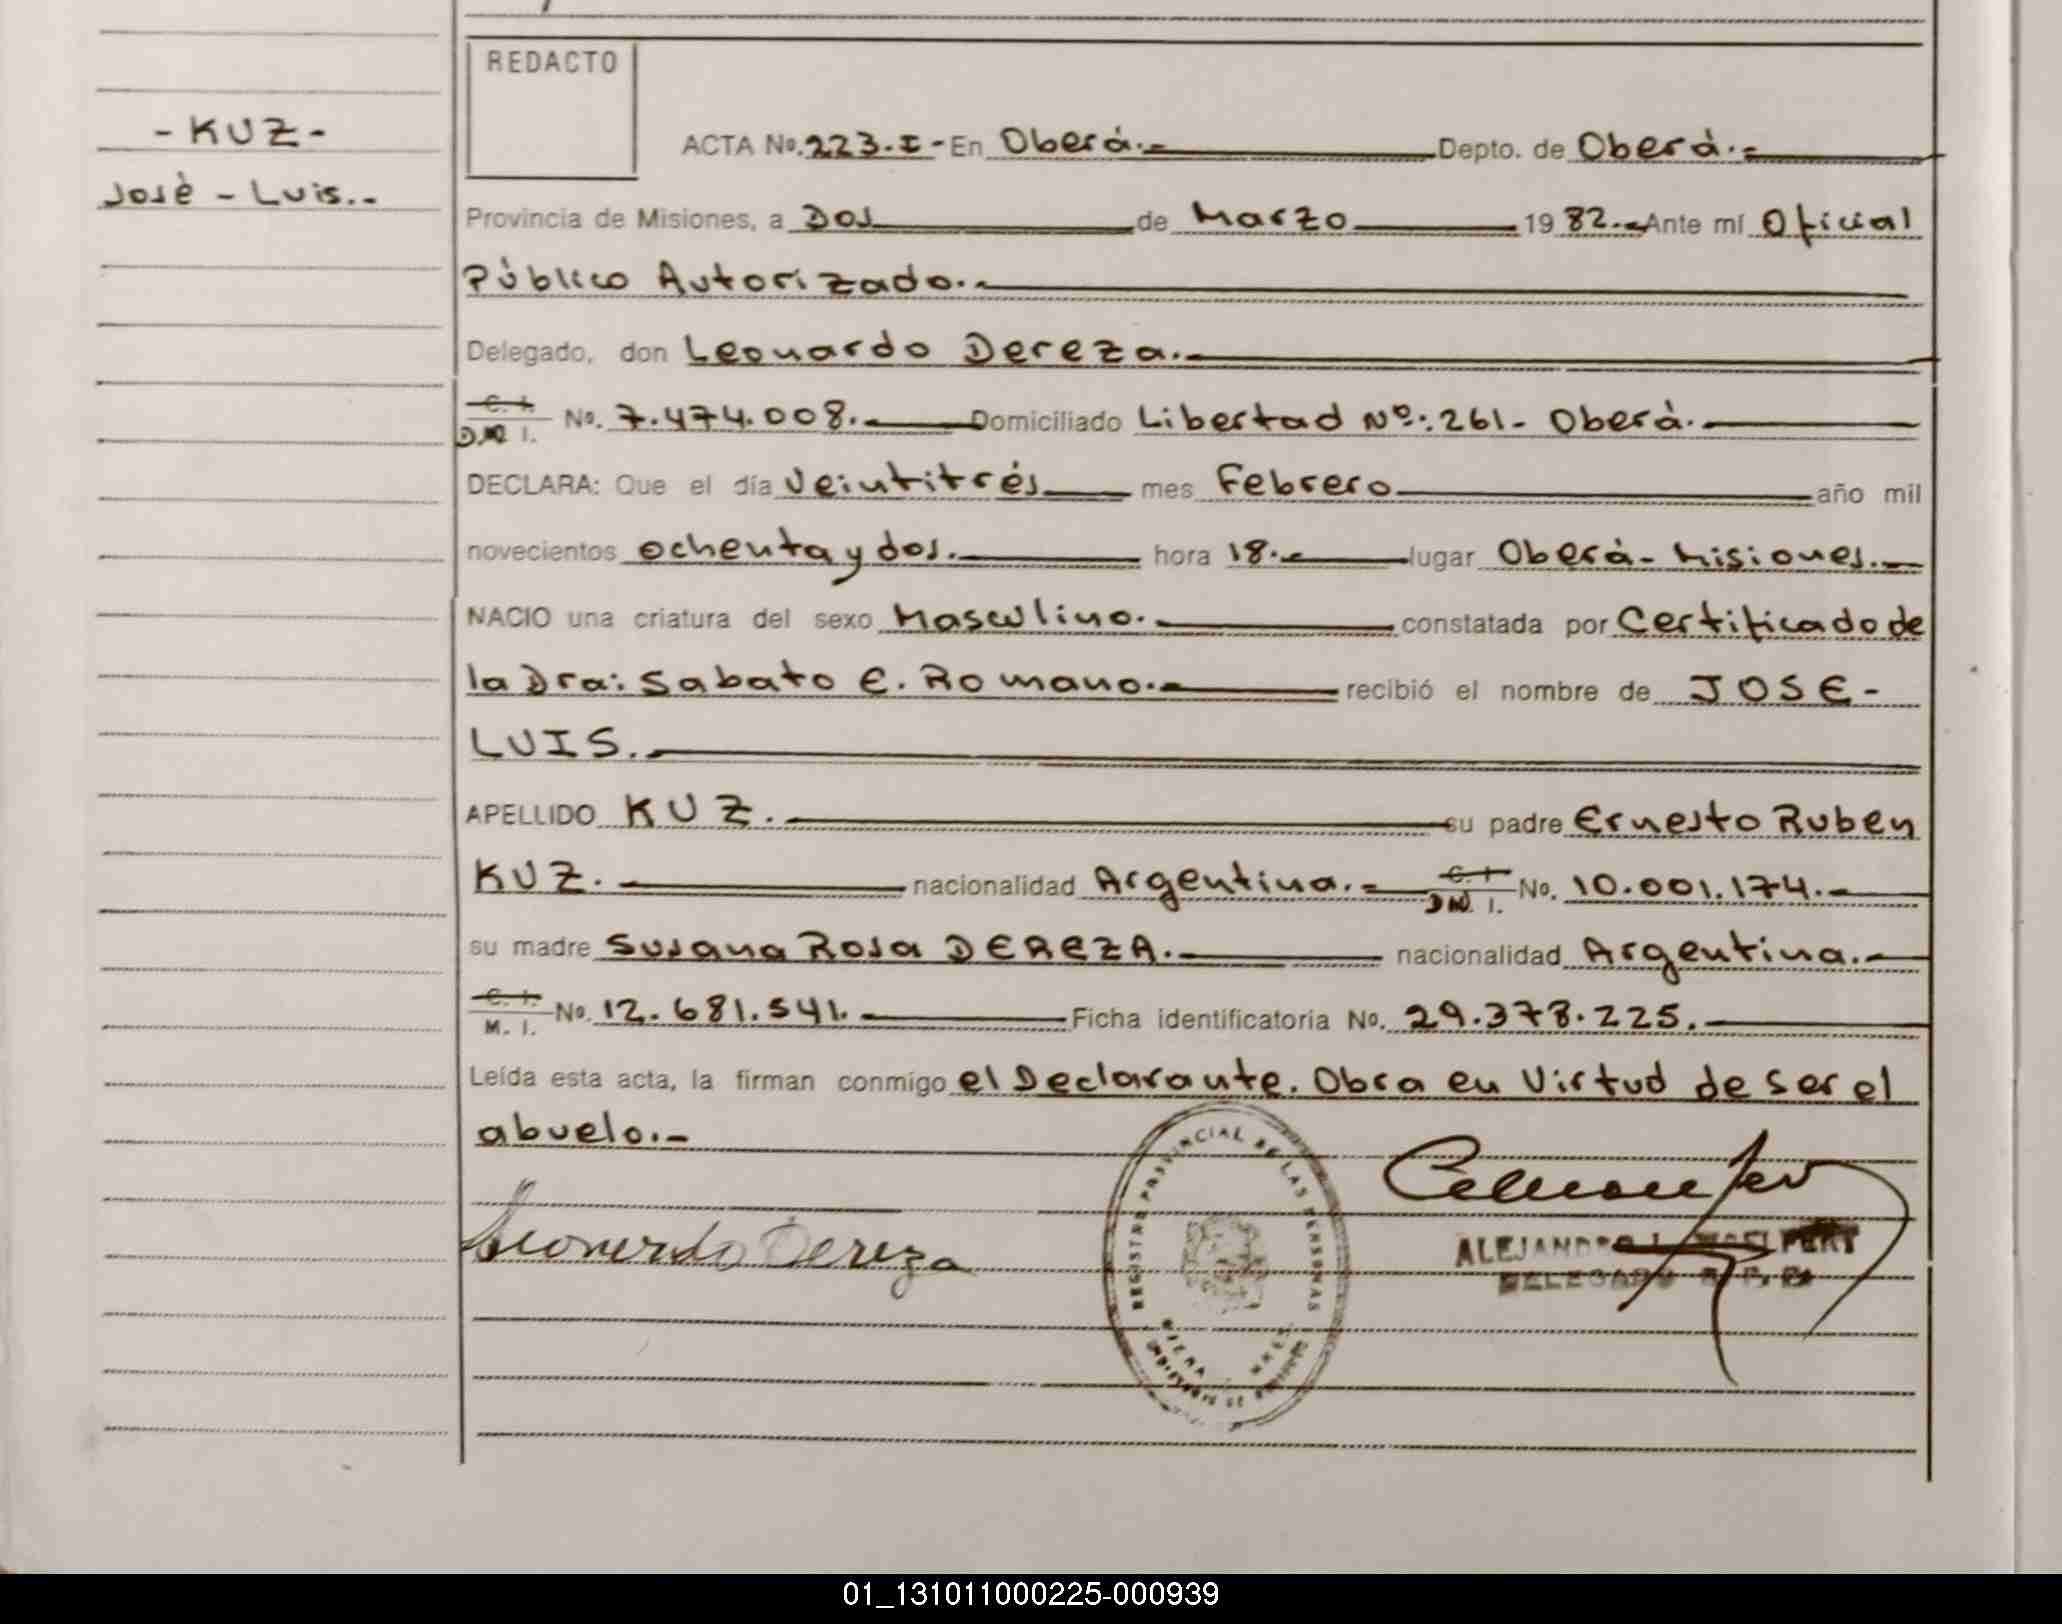 REDACTO
- KUZ -
José - Luis.-
ACTA No. 223.I - En Oberá.- Depto. de Oberá.-
Provincia de Misiones, a Dos de Marzo 19 82.- Ante mí Oficial
Público Autorizado.-
Delegado, don Leonardo Dereza.-
C. I.
D.N I. No. 7.474.008.- Domiciliado Libertad Nº: 261- Oberá.-
DECLARA: Que el día Veintitrés mes Febrero año mil
novecientos ochenta y dos.- hora 18.- lugar Oberá- Misiones.-
NACIO una criatura del sexo Masculino.- constatada por Certificado de
la Dra: Sabato E. Romano.- recibió el nombre de JOSE-
LUIS.-
APELLIDO KUZ.- su padre Ernesto Ruben
KUZ.- nacionalidad Argentina.- C. I. DN. I. No. 10.001.174.-
su madre Susana Rosa DEREZA.- nacionalidad Argentina.-
C. I.
M. I. No. 12.681.541.- Ficha identificatoria No. 29.378.225.-
Leída esta acta, la firman conmigo el Declarante. Obra en Virtud de ser el
abuelo.-
Leonardo Dereza
REGISTRO PROVINCIAL DE LAS PERSONAS
ALEJANDRO
DELEGADO R. P. P.
01_131011000225-000939